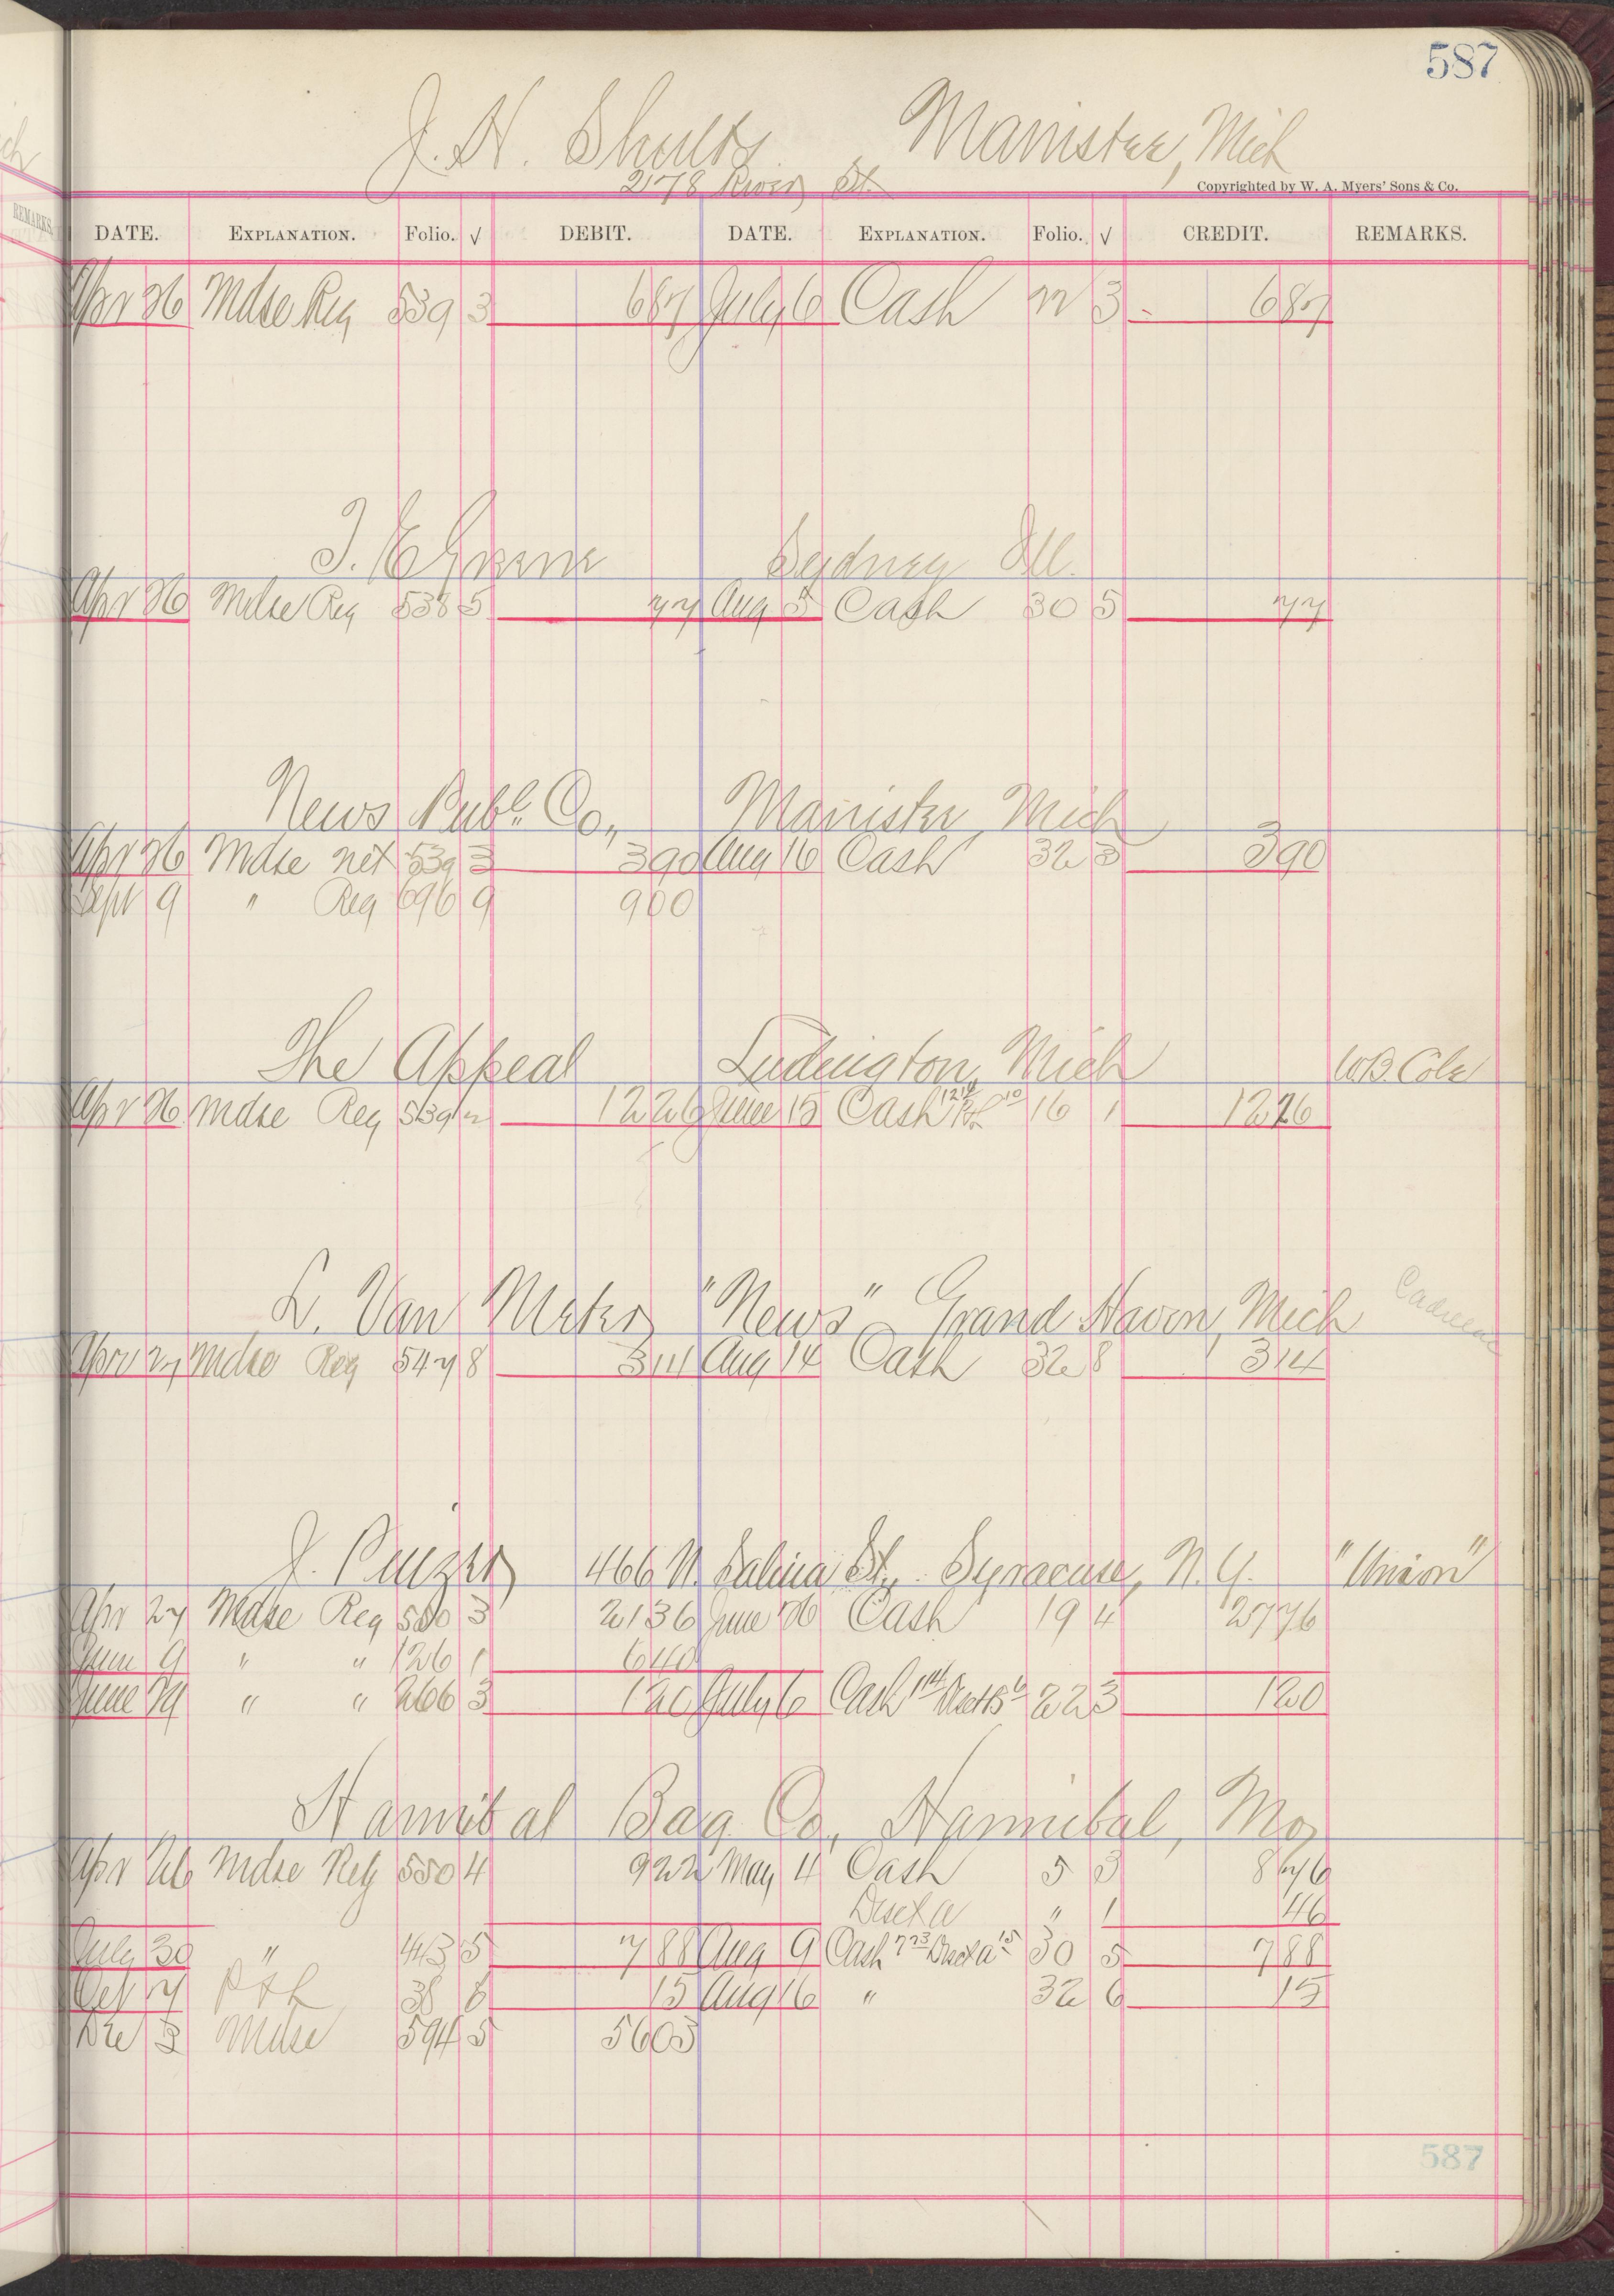 587
J. H. Shults Manistee, Mich
278 River St.
Copyrighted by W. A. Myers' Sons & Co.
DATE. EXPLANATION. Folio. √ DEBIT. DATE. EXPLANATION. Folio. √ CREDIT. REMARKS.
Apr 26 Mdse Reg 539 3 687 July 6 Cash 22 3 687
Sydney Ill.
Apr 26 Mdse Reg 538 5 77 Aug 5 Cash 30 5 77
News Publ. Co., Manistee, Mich
Apr 26 Mdse net 539 3 390 Aug 16 Cash 32 3 390
Sept 9 " Reg 696 9 900
The Appeal Ludington, Mich W.B. Cole
Apr 26 Mdse Reg 539 2 1226 June 15 Cash 16 1 1226
L. Van Meter "News" Grand Haven, Mich
Apr 27 Mdse Reg 547 8 314 Aug 14 Cash 32 8 314
J. 466 N. Salina St., Syracuse, N.Y. "Union"
Apr 27 Mdse Reg 550 3 2136 June 26 Cash 19 4 2776
June 9 " " 126 1 640
June 29 " " 266 3 120 July 6 Cash 22 3 120
Hannibal Bag Co., Hannibal, Mo
Apr 26 Mdse Reg 550 4 922 May 4 Cash 5 3 876
" 1 46
July 30 " 443 5 788 Aug 9 Cash 30 5 788
15 Aug 16 " 32 6 15
Dec 3 Mdse 594 5 5605
587